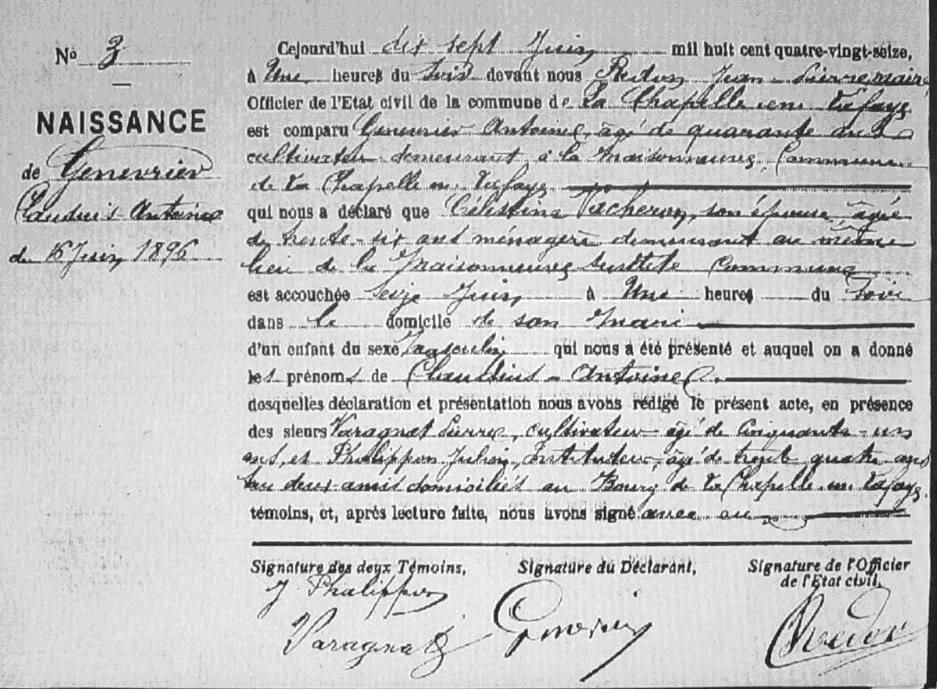 No 3
NAISSANCE
de Genevrier
Claudius Antoine
du 16 Juin 1896
Cejourd'hui dix sept Juin mil huit cent quatre-vingt-seize,
à Une heures du Soir devant nous Jean-Pierre maire
Officier de l'Etat civil de la commune de La Chapelle en Lafaye
est comparu Genevrier Antoine, âgé de quarante ans
cultivateur demeurant à la Maisonneuve, Commune
de La Chapelle en Lafaye
qui nous a déclaré que Célestine Vacheron, son épouse âgée
de trente-six ans ménagère demeurant au même
lieu de la Maisonneuve susdite Commune
est accouchée Seize Juin à Une heures du Soir
dans le domicile de son Mari
d'un enfant du sexe Masculin qui nous a été présenté et auquel on a donné
les prénoms de Claudius-Antoine.
desquelles déclaration et présentation nous avons rédigé le présent acte, en présence
des sieurs Varagnat Pierre, cultivateur âgé de Cinquante-un
ans, et Philippon Julien, Instituteur, âgé de trente quatre ans
deux amis domiciliés au Bourg de La Chapelle en Lafaye
témoins, et, après lecture faite, nous avons signé avec eux
Signature des deux Témoins, Signature du Déclarant, Signature de l'Officier
de l'Etat civil,
J Philippon
Varagnat Genevrier